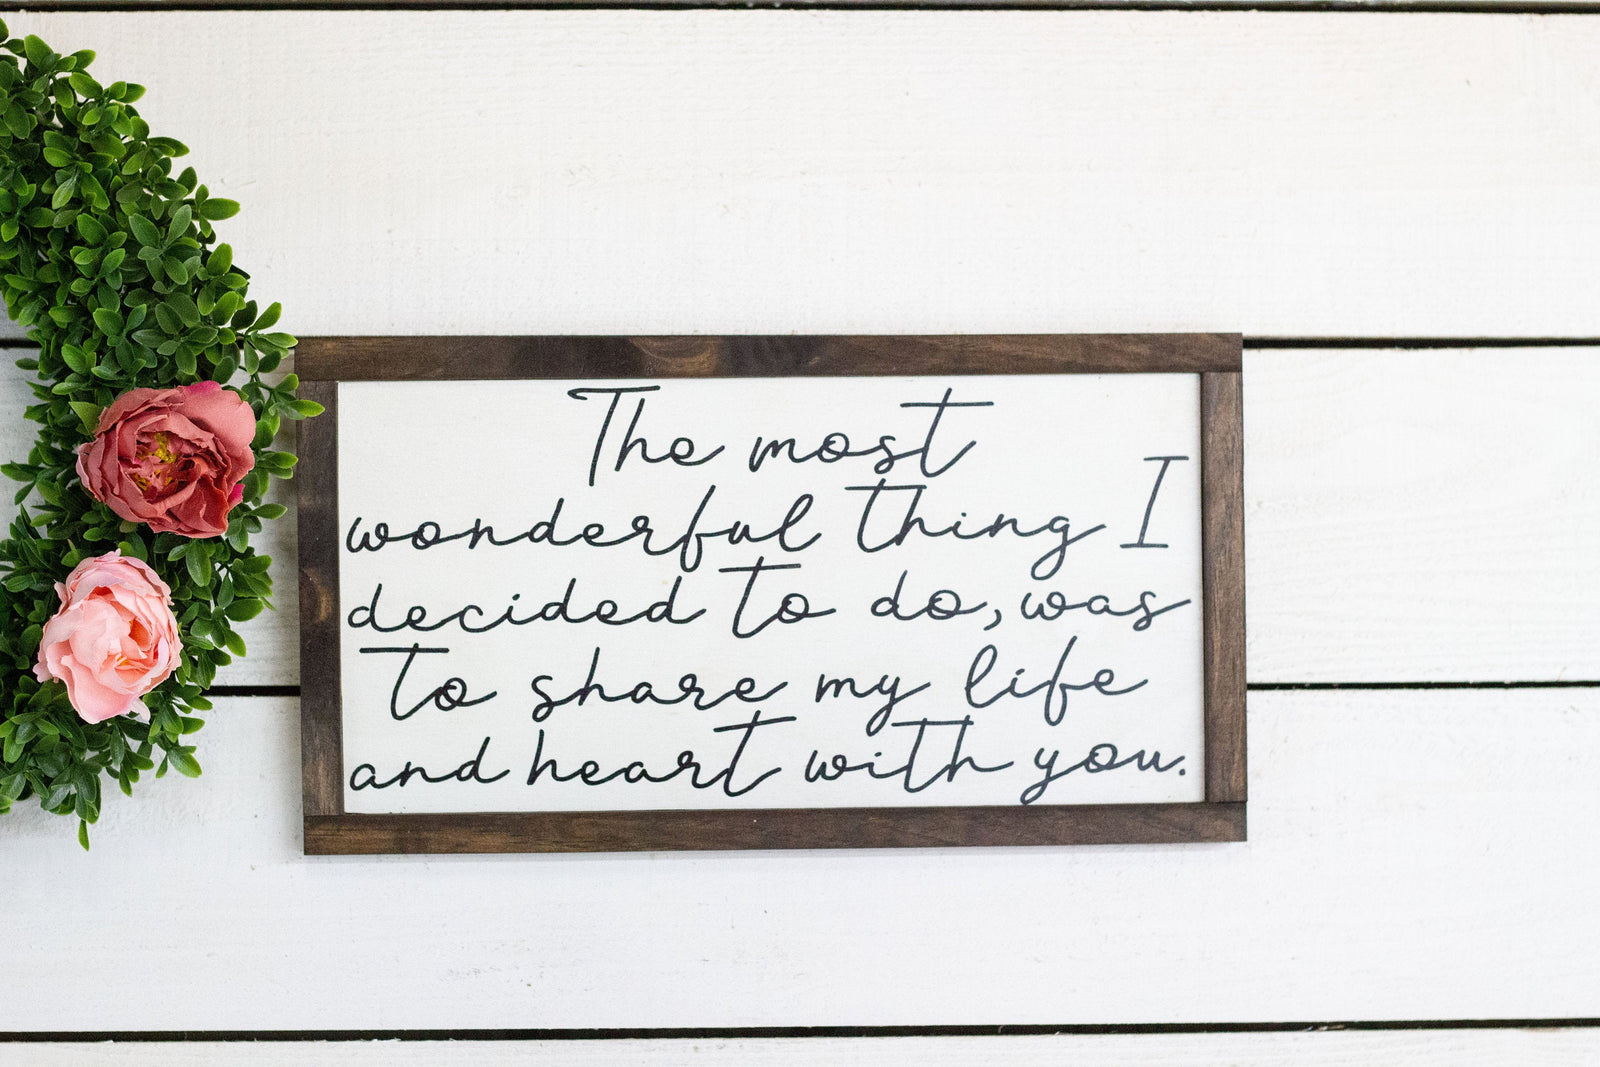 The most
wonderful thing I
decided to do, was
to share my life
and heart with you.